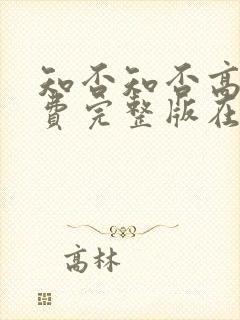 知否知否高
费完整版在
高林